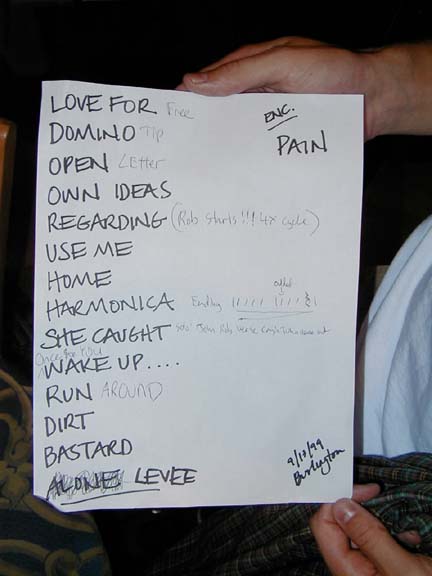 LOVE FOR Free
DOMINO Tip
OPEN Letter
OWN IDEAS
REGARDING (Rob starts!!! 4x cycle)
USE ME
HOME
HARMONICA Ending
SHE CAUGHT solo John Rob Verse
Once for you
WAKE UP....
RUN AROUND
DIRT
BASTARD
ALONE LEVEE
ENC.
PAIN
9/10/99
Burlington